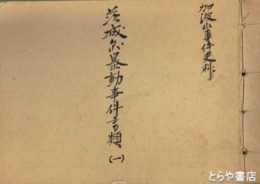 加波山事件史料
茨城分暴動事件書類
(一)
とらや書店